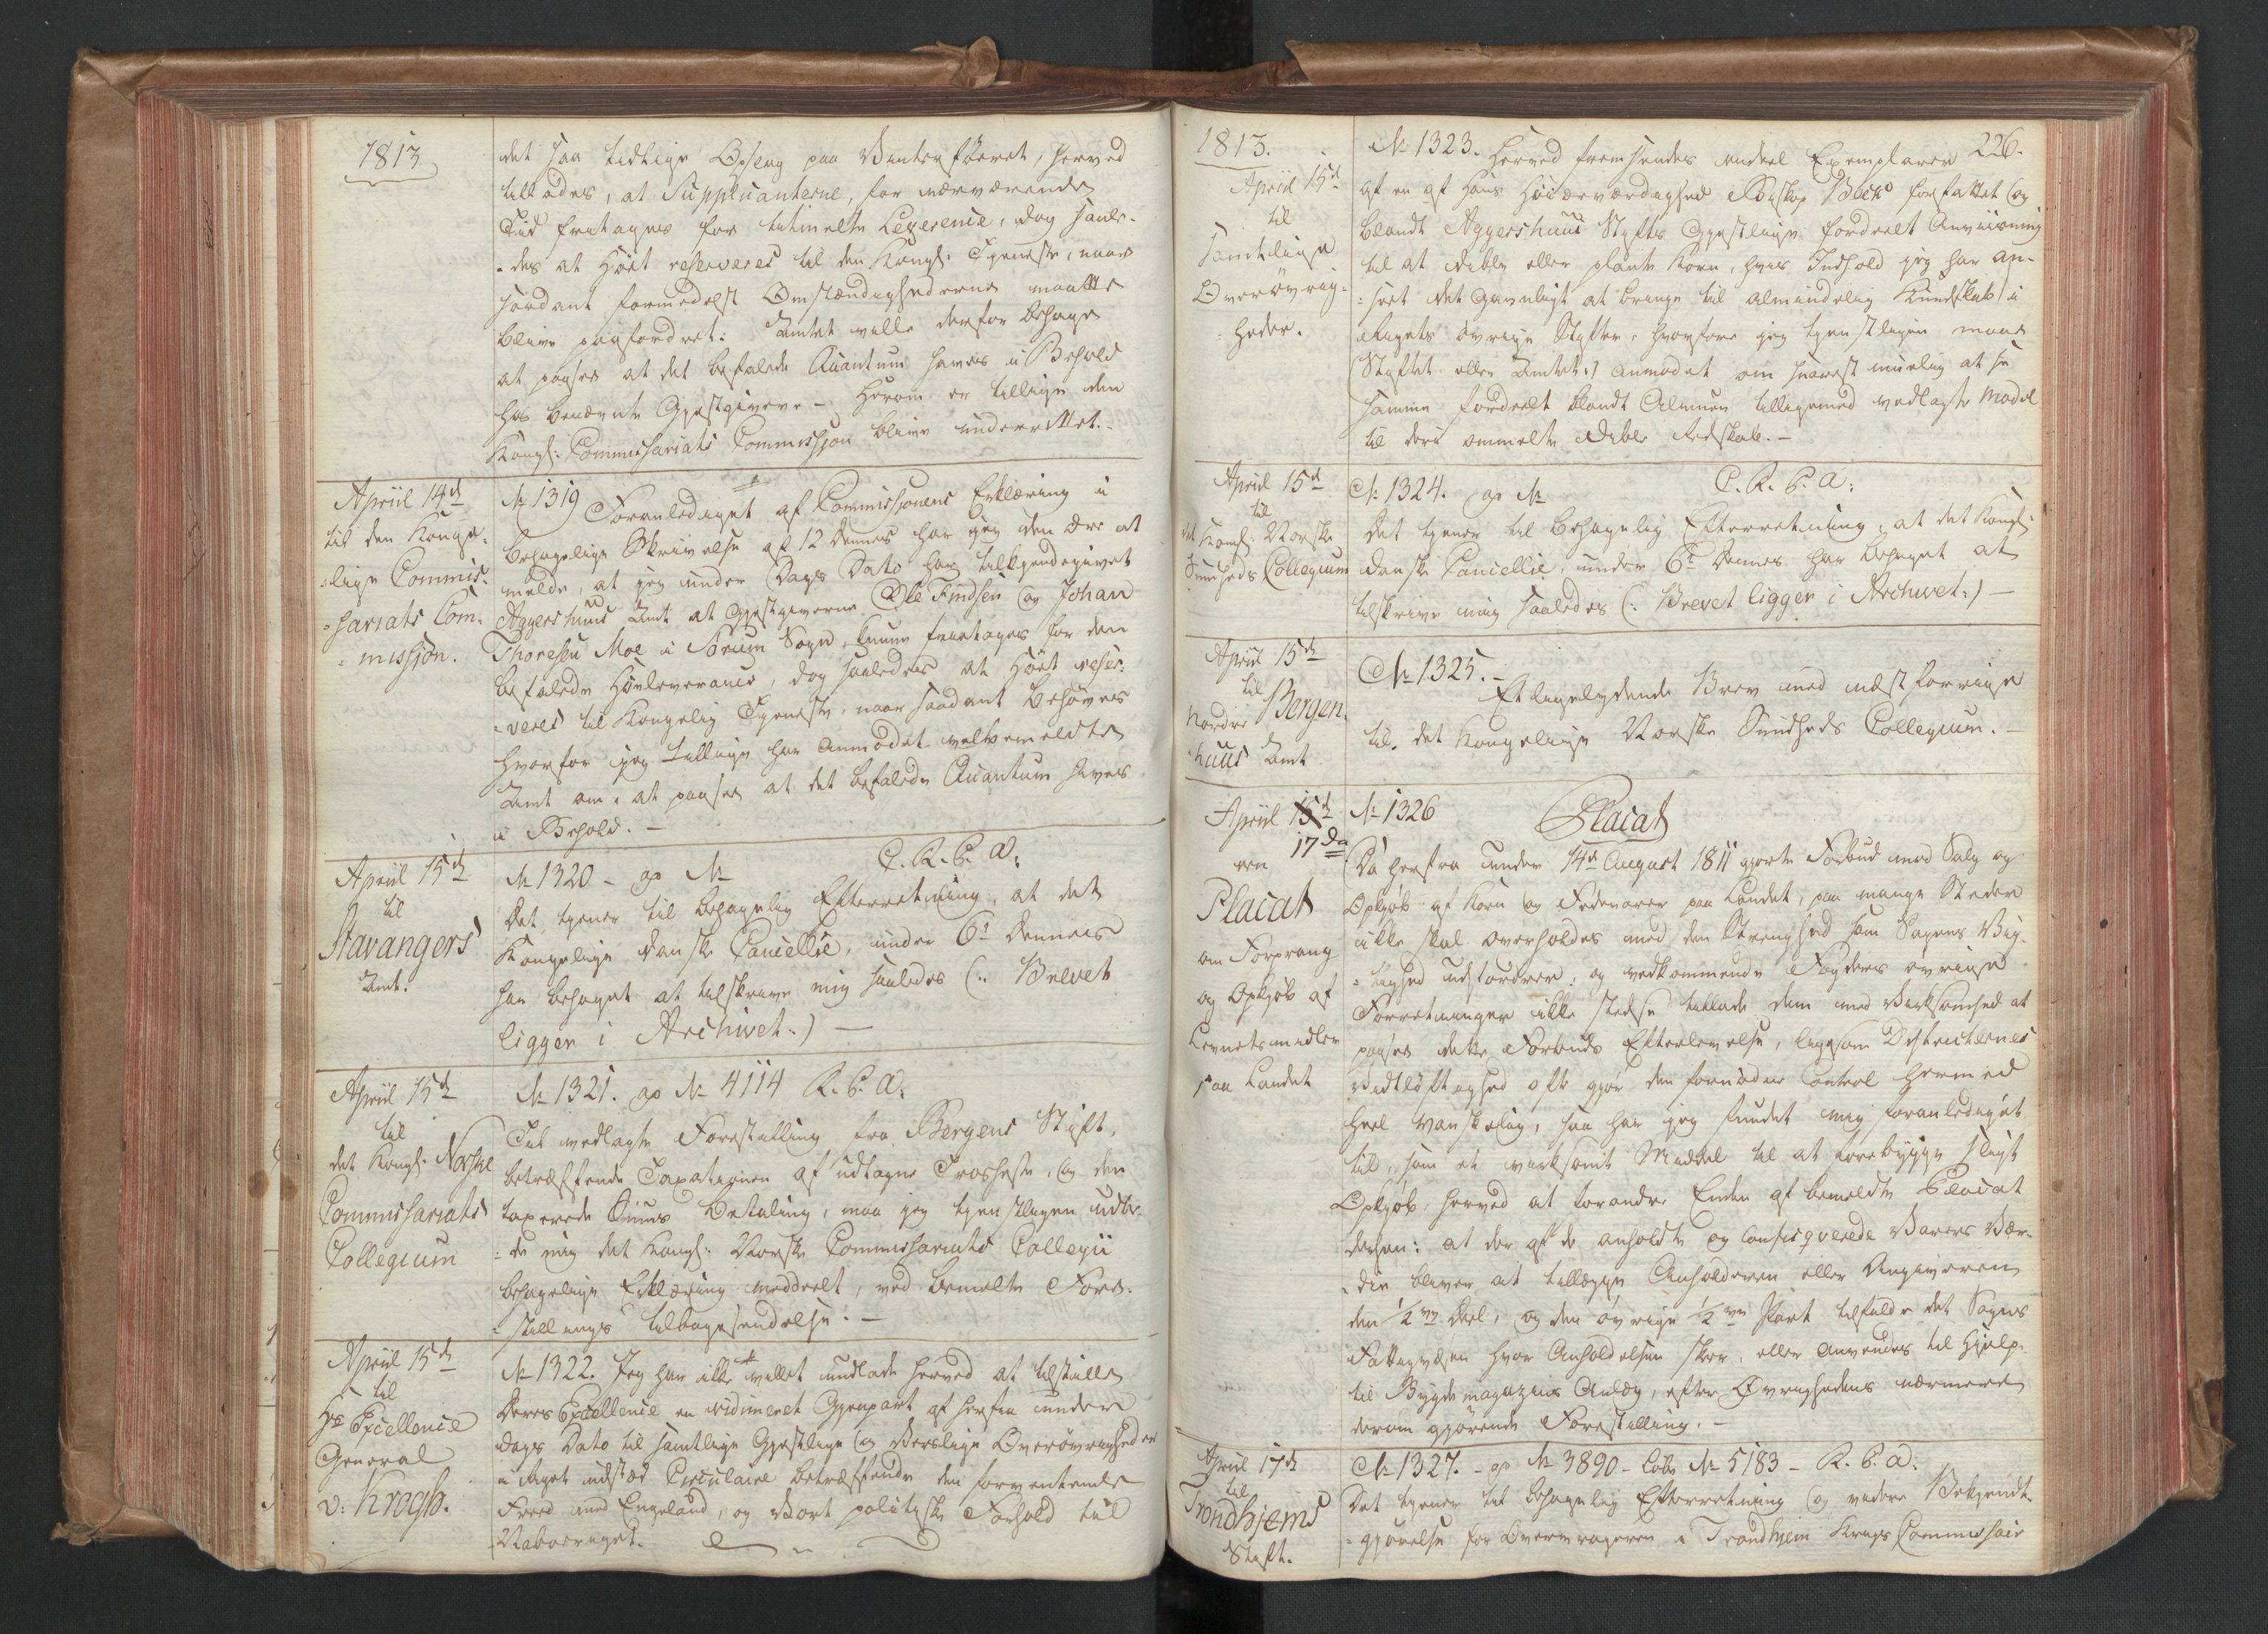 1813
det saa tidlige Ophug paa Vinterföeret, herved
tillades, at Supplicanterne, for nærværende
Tid fritages for bemelte Leverence, dog saale-
-des at Höet reserveres til den Kongl: Tjeneste, naar
saadant formedelst Omstændighederne maatte
blive paafordret: Amtet ville derfor behage
at paasee at det befalede Quantum haves i Behold
hos benævnte Gjestgivere – Herom er tillige den
Kongl: Commissariats Commission bleven underrettet. –
Apriil 14d
til den Konge-
-lige Commis-
-sariats Com-
-mission.
No 1319 Foranlediget af Commissionens Erklæring i
behagelige Skrivelse af 12 dennes har jeg den Ære at
melde, at jeg under Dags Dato har tilkjendegivet
Aggershuus Amt at Gjestgiverne Ole Findsen og Johan
Thoresen Moe i Sörum Sogn kunne fritages for den
befalede Höeleverance, dog saaledes at Höet reser-
-veres til Kongelig Tjeneste, naar saadant behöves
hvorfor jeg tillige har anmodet velbemeldte
Amt om, at paasee at det befalede Quantum haves
i Behold. –
Apriil 15d
til
Stavangers
Amt.
No 1320 – go No C. R. P. A:
Det tjener til behagelig Efterretning, at det
Kongelige danske Cancellie, under 6t dennes
har behaget at tilskrive mig saaledes (: Brevet
ligger i Archivet:) –
Apriil 15d
til
det Kongl: Norske
Commissariats
Collegium
No 1321. go No 4114 R. P. A:
Til vedlagte Forestilling fra Bergens Stift,
betræffende Taxationen af udtagne Trosheste, og den
taxerede Summes Betaling, maa jeg tjenstligen udbe-
-de mig det Kongl: Norske Commissariats Collegii
behagelige Erklæring meddeelt, ved bemelte Fore-
-stillings tilbagesendelse. –
Apriil 15d
til
Hs Excellence
General
v: Krogh.
No 1322. Jeg har ikke villet undlade herved at tilstille
Deres Excellence en vidimeret Gjenpart af herfra under
dags Dato til samtlige Gjestlige og Verslige Overövrigheder
i Riget udstæd Circulaire betræffende den forventende
Freed med Engeland, og Vort politiske Forhold til
Naboeriget.
1813.
226.
Apriil 15d
til
samtlige
Overövrig-
-heder.
No 1323. Herved fremsendes endeel Exemplarer
af en af Hans Höiærværdighed Biskop Bech forfattet og
blandt Aggershuus Stifts Gjestlige fordeelt Anviisning
til at dible eller plante Korn, hvis Indhold jeg har an-
-seet det gavnligt at bringe til almindelig Kundskab i
Rigets övrige Stifter, hvorfore jeg tjenstligen maae
(Stiftet eller Amtet:) anmodet om snarest muelig at see
samme fordeelt blandt Almuen tilligemed vedlagte Model
til deri ommelte dible Redskab. –
Apriil 15d
til
det Kongl: Norske
Sundheds Collegium
No 1324. go No C. R. P. A:
Det tjener til behagelig Efterretning, at det Kongl:
danske Cancellie, under 6t dennes har behaget at
tilskrive mig saaledes (: Brevet ligger i Archivet:) –
Apriil 15d
til
Nordre Bergen-
-huus Amt
No 1325. –
Et ligelydende Brev med næst forrige
til det Kongelige Norske Sundheds Collegium. –
Apriil 15d
17de
en
Placat
om Forprang
og Opkjöb af
Levnetsmidler
paa Landet
No 1326 Placat
Da herfra under 14d August 1811 gjorte Forbud mod Salg og
Opkjöb af Korn og Fedevarer paa Landet, paa mange Steder
ikke skal overholdes med den Strenghed som Sagens Vig-
-tighed udfordrer; og vedkommende Fogders övrige
Forretninger ikke stedse tillade dem med Virksomhed at
paasee dette Forbuds Efterlevelse, ligesom Districternes
Vidtlöftighed ofte gjör den fornödne Control hermed
heel vanskelig, saa har jeg fundet mig foranlediget
til, som et virksomt Middel til at forebygge sligt
Opkjöb, herved at forandre Enden af bemeldte Placat
derhen: at der af de anholdte og confisqverede Varers Vær-
-die bliver at tillægge Anholderen eller Angiveren
den 1/2ve Deel, og den övrige 1/2ve Part tilfalde det Sogns
Fattigvæsen hvor Anholdelsen skeer, eller anvendes til Hjelp
til Bygdemagazins Anlæg, efter Övrighedens nærmere
derom gjörende Forestilling. –
Apriil 17d
til
Trondhjems
Stift.
No 1327. – go No 3890 – Cobs No 5183 – R. P. A.
Det tjener til behagelig Efterretning og videre Bekjendt-
-gjörelse for Overvrageren i Trondhjem Krigs Commissair